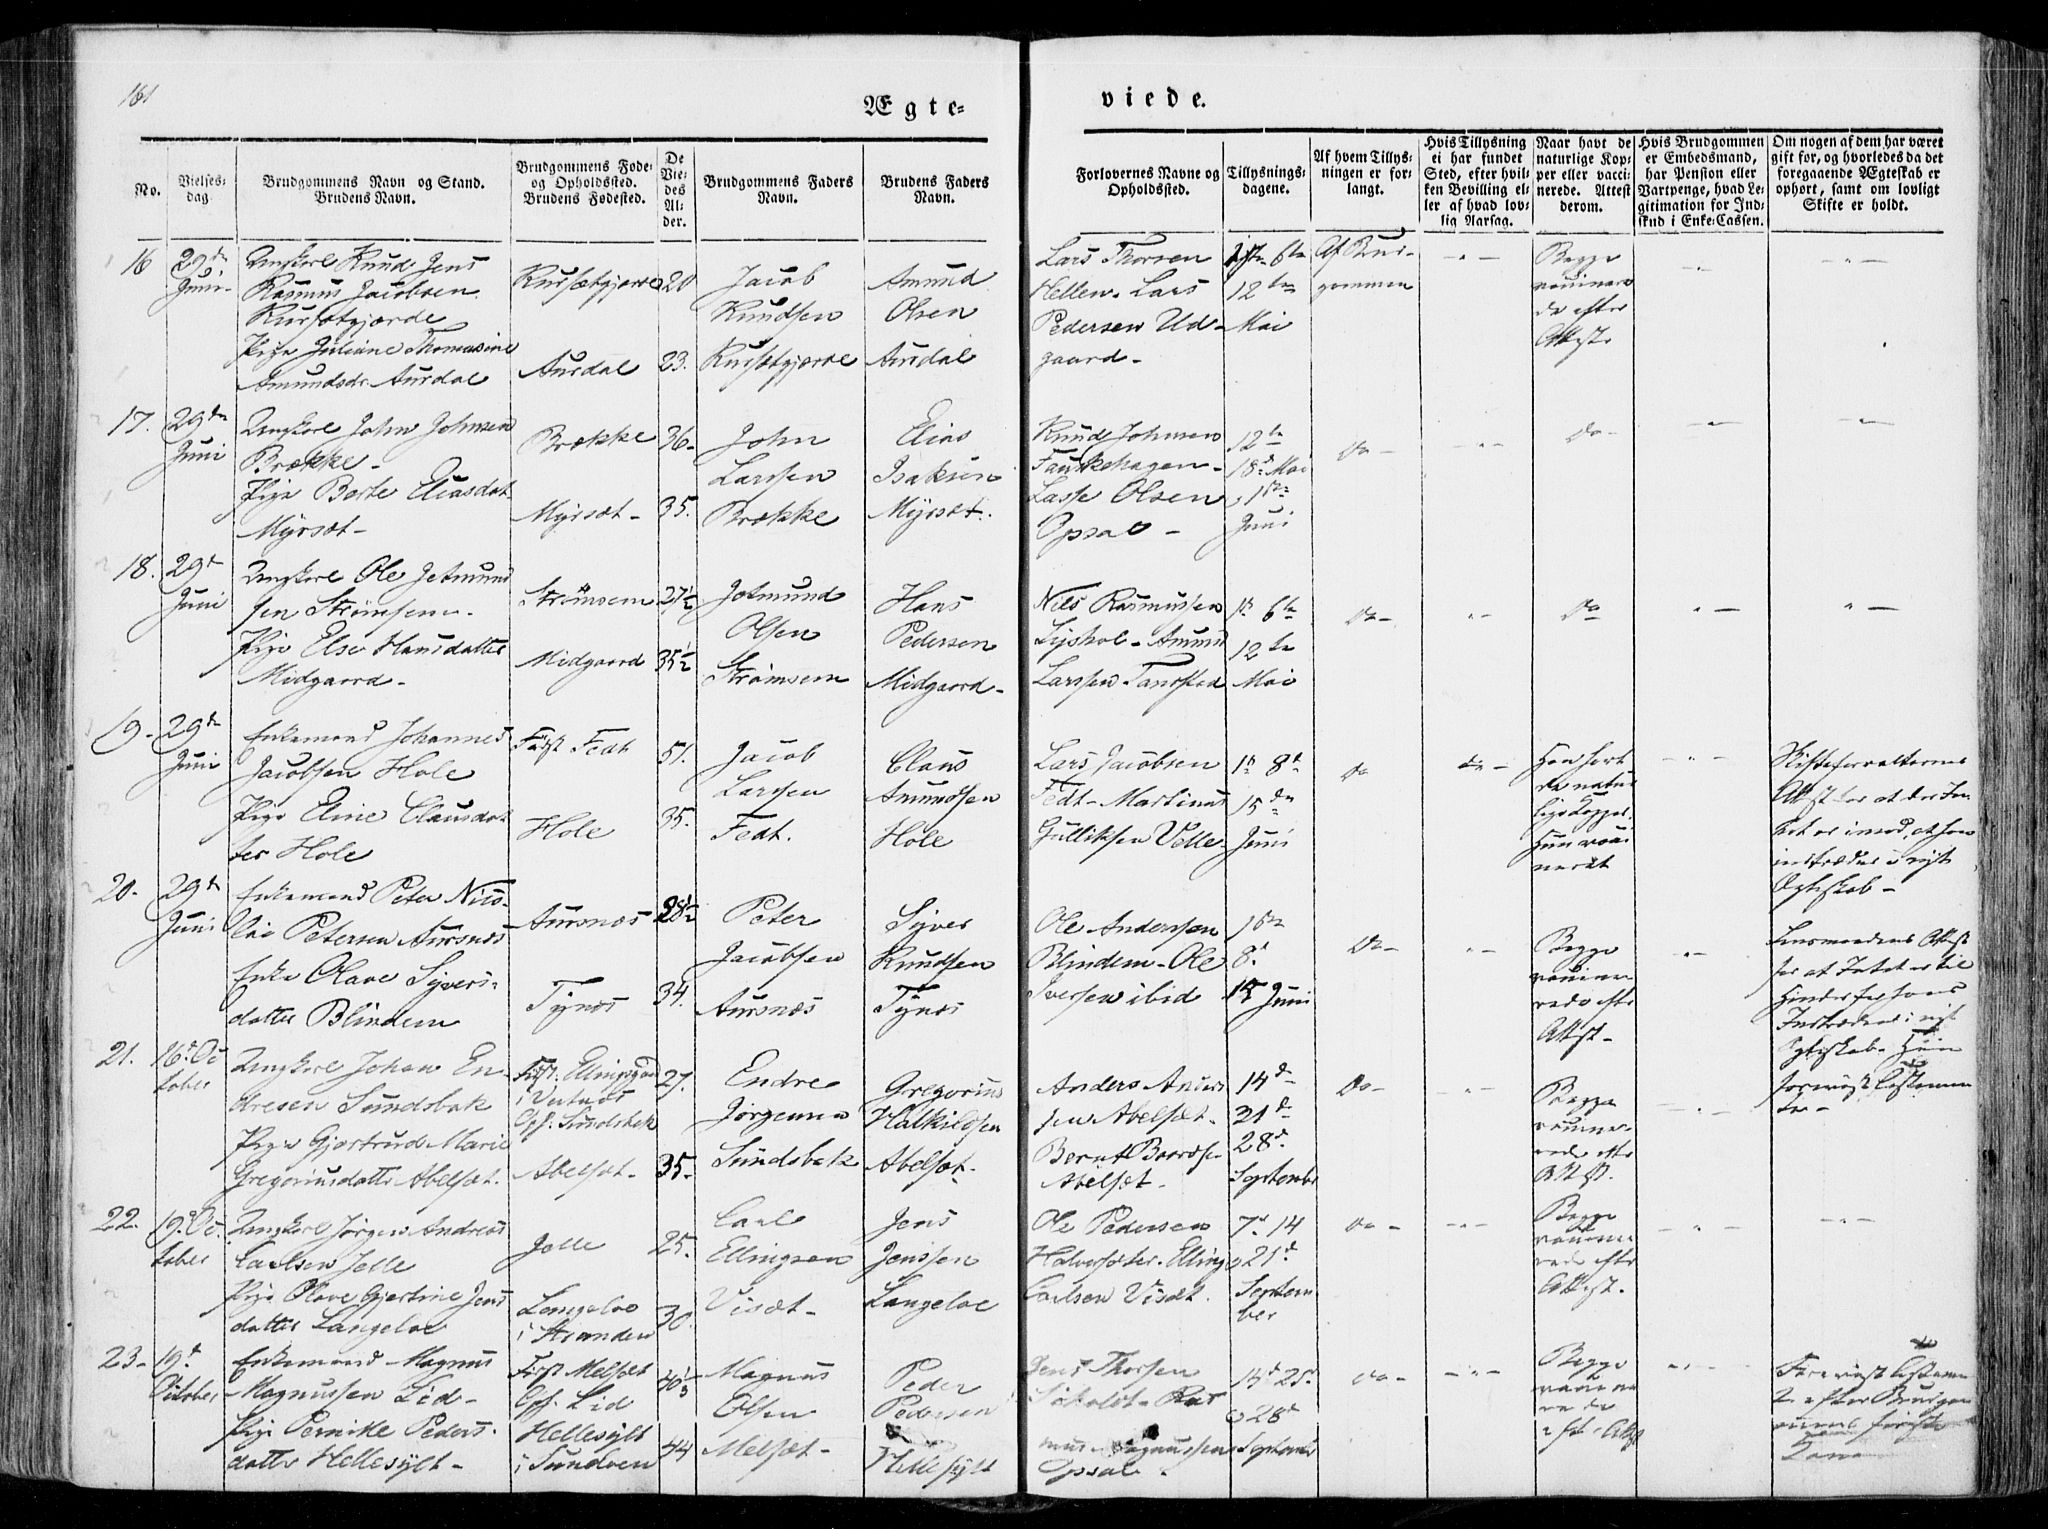 161
Ægte=
viede.
No.
Vielses=
dag.
Brudgommens Navn og Stand.
Brudens Navn.
Brudgommens Føde=
og Opholdssted.
Brudens Fødested.
De
Vie=
des
Al=
der.
Brudgommens Faders
Navn.
Brudens Faders
Navn.
Forlovernes Navne og
Opholdssted.
Tillysnings=
dagene.
Af hvem Tillys=
ningen er for=
langt.
Hvis Tillysning
ei har fundet
Sted, efter hvil=
ken Bevilling el=
ler af hvad lov=
lig Aarsag.
Naar havt de
naturlige Kop=
per eller vacci=
nerede. Attest
derom.
Hvis Brudgommen
er Embedsmand,
har Pension eller
Vartpenge, hvad Le=
gitimation for Ind=
skud i Enke=Cassen.
Om nogen af dem har været
gift før, og hvorledes da det
foregaaende Ægteskab er
ophørt, samt om lovligt
Skifte er holdt.
16
29de
Juni
Ungkarl Knud Jens
Rasmus Jacobsen
Kursætgjærde
Pige Juliane Thomasine
Amundsdr Aursdal
Kursætgjærde
Aursdal
20
23.
Jacob
Knudsen
Kursætgjerde
Amund
Olsen
Aursdal
Lars Thorsen
Hellen. Lars
Pedersen Ud-
gaard -
1ste 6te
12te
Mai
Af Brud-
gommen
Begge
vaccinere
de efter
Attest
17.
29de
Juni
Ungkarl John Johnsen
Brække -
Pige Berte Eliasdat
Myrsæt -
Brække
Myrsæt -
36-
35.
John
Larssen
Brække
Elias
Isaksen
Myrsæt.
Knud Johnsen
Fauskehagen -
Lasse Olsen
Opsal -
12te
18d Mai
1ste
Juni
Do -
Do -
18.
29d
Juni
Ungkarl Ole Jetmund
sen Strømsem -
Pige Else Hansdatter
Midgaard -
Strømsem
Midgaard
27½
35½
Jetmund
Olsen
Strømsem
Hans
Pedersen
Midgaard -
Nils Rasmussen
Lyshol - Amund
Larssen Tandstad
1st 6te
12te
Mai
Do -
Do
19 -
29de
Juni
Enkemand Johannes
Jacobsen Hole
Pige Eline Clausdat
ter Hole
Født Fedt
Hole
51.
35.
Jacob
Larssen
Fedt.
Claus
Amundsen
Hole
Lars Jacobsen
Fedt - Martinus
Gulliksen Velle
1st 8de
15de
Juni
Do
Han havt
de natur
lige Kopper
Hun vacci
neret
Skifteforvalterens
Attest for at der In
tet er imod, at han
indtræder i nyt
Ægteskab -
20-
29de
Juni
Enkemand Peter Nico-
lai Petersen Aursnæs
Enke Olave Syvers-
datter Blindem
Aursnæs
Tynæs
28½
34.
Peter
Jacobsen
Aursnæs
Syver
Knudsen
Tynæs
Ole Anderssen
Blindem - Ole
Iversen ibid
1ste
8d
15 Juni
Do -
Begge
vaccine
rede efter
Attest -
Lensmandens Attest
for at Intet er til
Hinder for hans
Indtrædelse i nyt
Ægteskab - Hun
forevist Testamen
te -
21.
16d Oc
tober
Ungkarl Johan En-
dresen Sundsbak
Pige Gjertrud Marie
Gregoriusdattr Abelsæt.
Født: Ellingsgaard
i Vatnæs
Oph: Sundsbak
Abelsæt -
27.
35-
Endre
Jørgensen
Sundsbak
Gregorius
Halkildsen
Abelsæt -
Anders Anders
sen Abelsæt -
Bernt Baardse
Abelsæt -
14d
21d
28d.
September
Do -
Begge
vaccine-
rede efter
Attest.
22.
19d Oc
tober
Ungkarl Jørgen Andreas
Carlsen Jelle
Pige Olave Gjertine Jens
datter Langeloe
Jelle
Langeloe
i Stranden
25.
30.
Carl
Ellingsen
Visæt -
Jens
Jenssen
Langeloe
Ole Pedersen
Halvorsæter. Elling
Carlsen Visæt.
7d 14
21d
Septem
ber
Do -
Begge
vaccine
rede efter
Attest.
23-
19d
October
Enkemand Magnus
Magnussen Lid -
Pige Pernille Peders-
datter Hellesylt -
Født Melsæt
Oph. Lid
Hellesylt
i Sundven
44
Magnus
Olsen
Melsæt -
Peder
Pedersen
Hellesylt
Jens Thorsen
Søholdt - Ras
mus Magnussen
Opsal -
14d 25d
28d
September
Do -
Begge
vaccine
rede
efter Attest
Forevist Testamen
te efter Brudgom
mens første
Kone